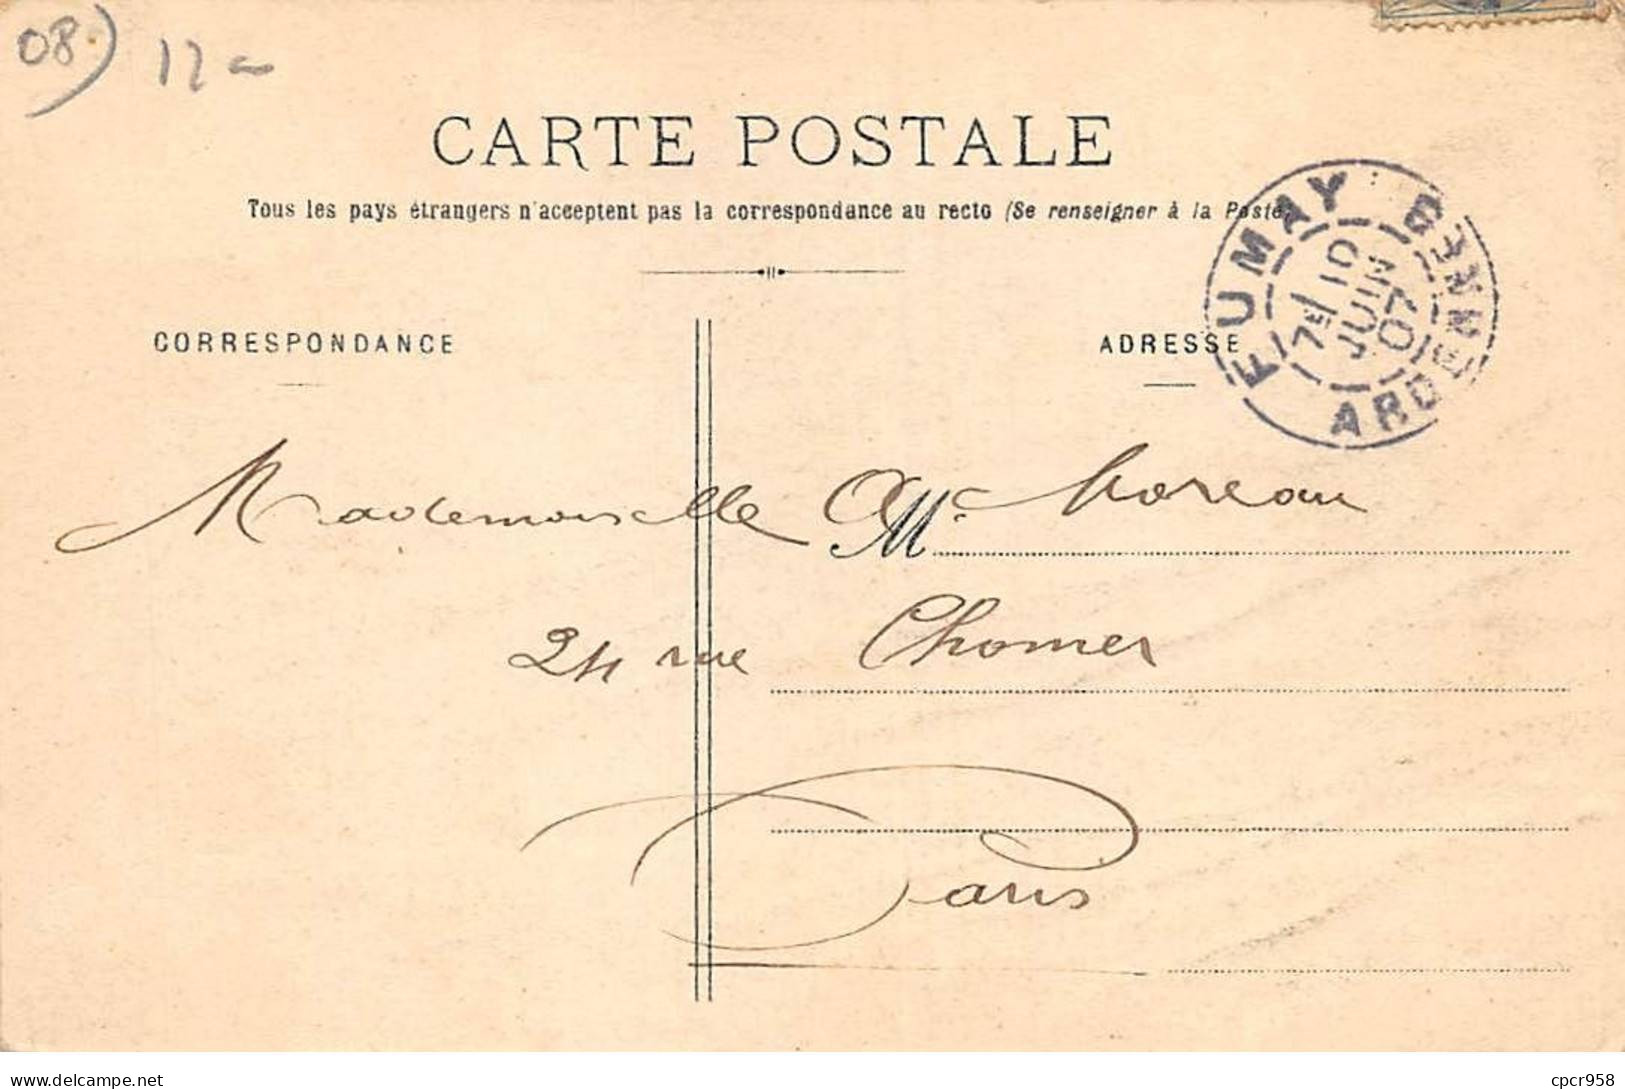 08) 12
CARTE POSTALE
Tous les pays étrangers n'acceptent pas la correspondance au recto (Se renseigner à la Poste)
CORRESPONDANCE
ADRESSE
FUMAY
ARDENNES
10
JUIN
07
Mademoiselle Moreau
M
24 rue Chomer
Paris
delcampe.net
cpcr958